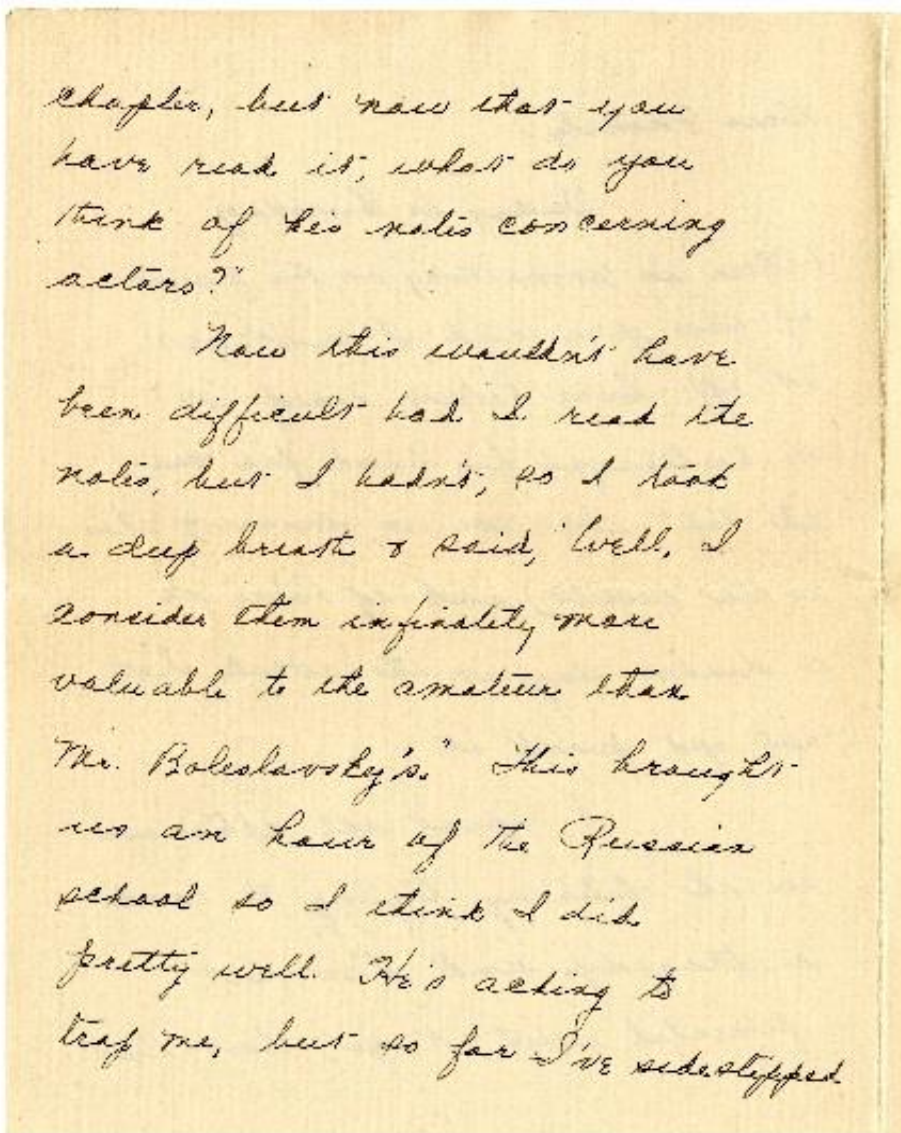 chapter, but now that you
have read it, what do you
think of his notes concerning
actors?"
Now this wouldn't have
been difficult had I read the
notes, but I hadn't, so I took
a deep breath & said, "Well, I
consider them infinately more
valuable to the amateur than
Mr. Boleslavsky's." This brought
us an hour of the Russian
school so I think I did
pretty well. He's aching to
trap me, but so far I've sidestepped